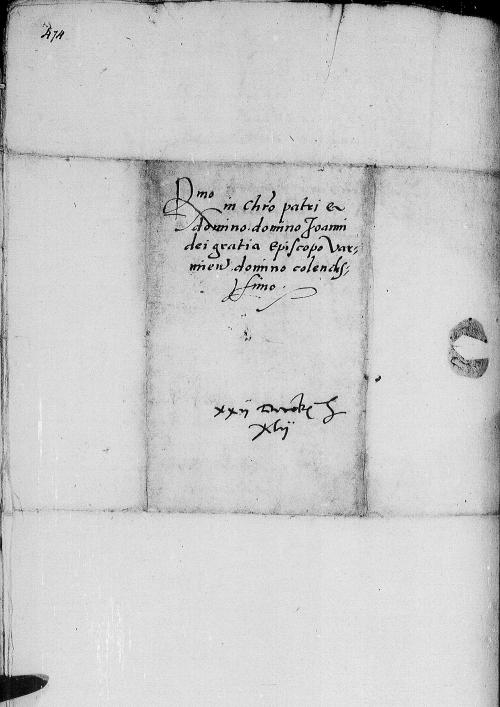 474
Rmo
in Chro patri et
domino domino Joanni
dei gratia Episcopo Var-
mien. domino colendis-
simo.
xxij
xlij